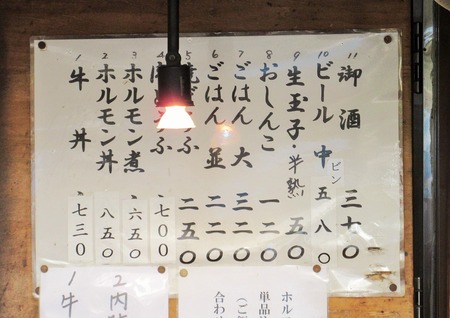 11 御酒 三七〇
10 ビール 中ビン 五八〇
9 生玉子・半熟 五〇
8 おしんこ 一二〇
7 ごはん 大 三二〇
6 ごはん 並 二二〇
5 ふ 二五〇
4 ふ 、七〇〇
3 ホルモン煮 、六五〇
2 ホルモン丼 八五〇
1 牛丼 、七三〇
ホル
単品
(ご
合わ
2 肉
1 牛